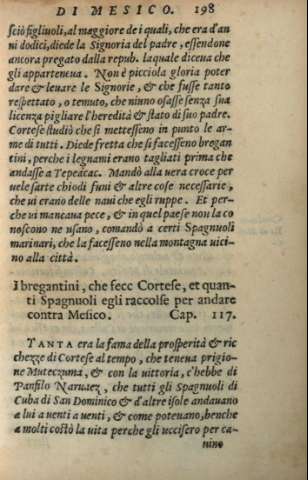 DI MESICO. 198
sciò figliuoli, al maggiore de i quali, che era d'an
ni dodici, diede la Signoria del padre, essendone
ancora pregato dalla repub. laquale diceua che
gli apparteneua. Non è picciola gloria poter
dare & leuare le Signorie, & che fusse tanto
rispettato, o temuto, che ninno osasse senza sua
licenza pigliare l'heredità & stato di suo padre.
Cortese studiò che si mettesseno in punto le ar-
me di tutti. Diede fretta che si facesseno bregan
tini, perche i legnami erano tagliati prima che
andasse a Tepeacac. Mandò alla uera croce per
uele sarte chiodi funi & altre cose necessarie,
che ui erano delle naui che egli ruppe. Et per-
che ui mancaua pece, & in quel paese non la co
noscono ne usano, comandò a certi Spagnuoli
marinari, che la facesseno nella montagna uici-
no alla città.
I bregantini, che fece Cortese, et quan-
ti Spagnuoli egli raccolse per andare
contra Mesico. Cap. 117.
TANTA era la fama della prosperità & ric
chezze di Cortese al tempo, che teneua prigio-
ne Muteczuma, & con la uittoria, c'hebbe di
Panfilo Naruaez, che tutti gli Spagnuoli di
Cuba di San Dominico & d'altre isole andauano
a lui a uenti a uenti, & come poteuano, benche
a molti costò la uita perche gli uccisero per ca-
nino